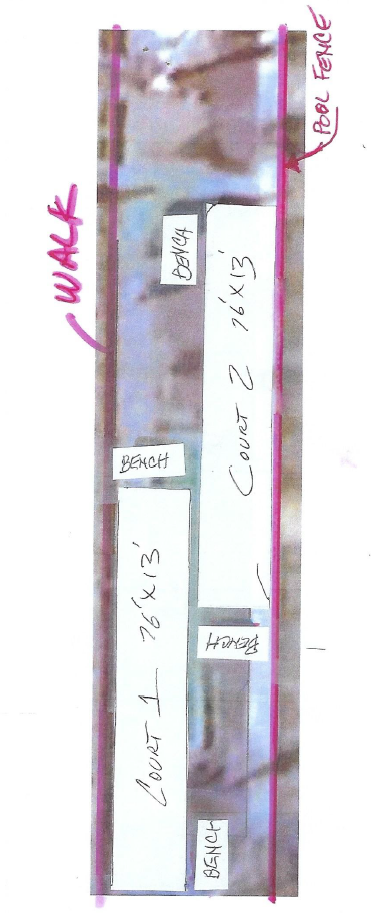 POOL FENCE
WALK
BENCH
COURT 2 76'X13'
BENCH
COURT 1 76'X13'
BENCH
BENCH